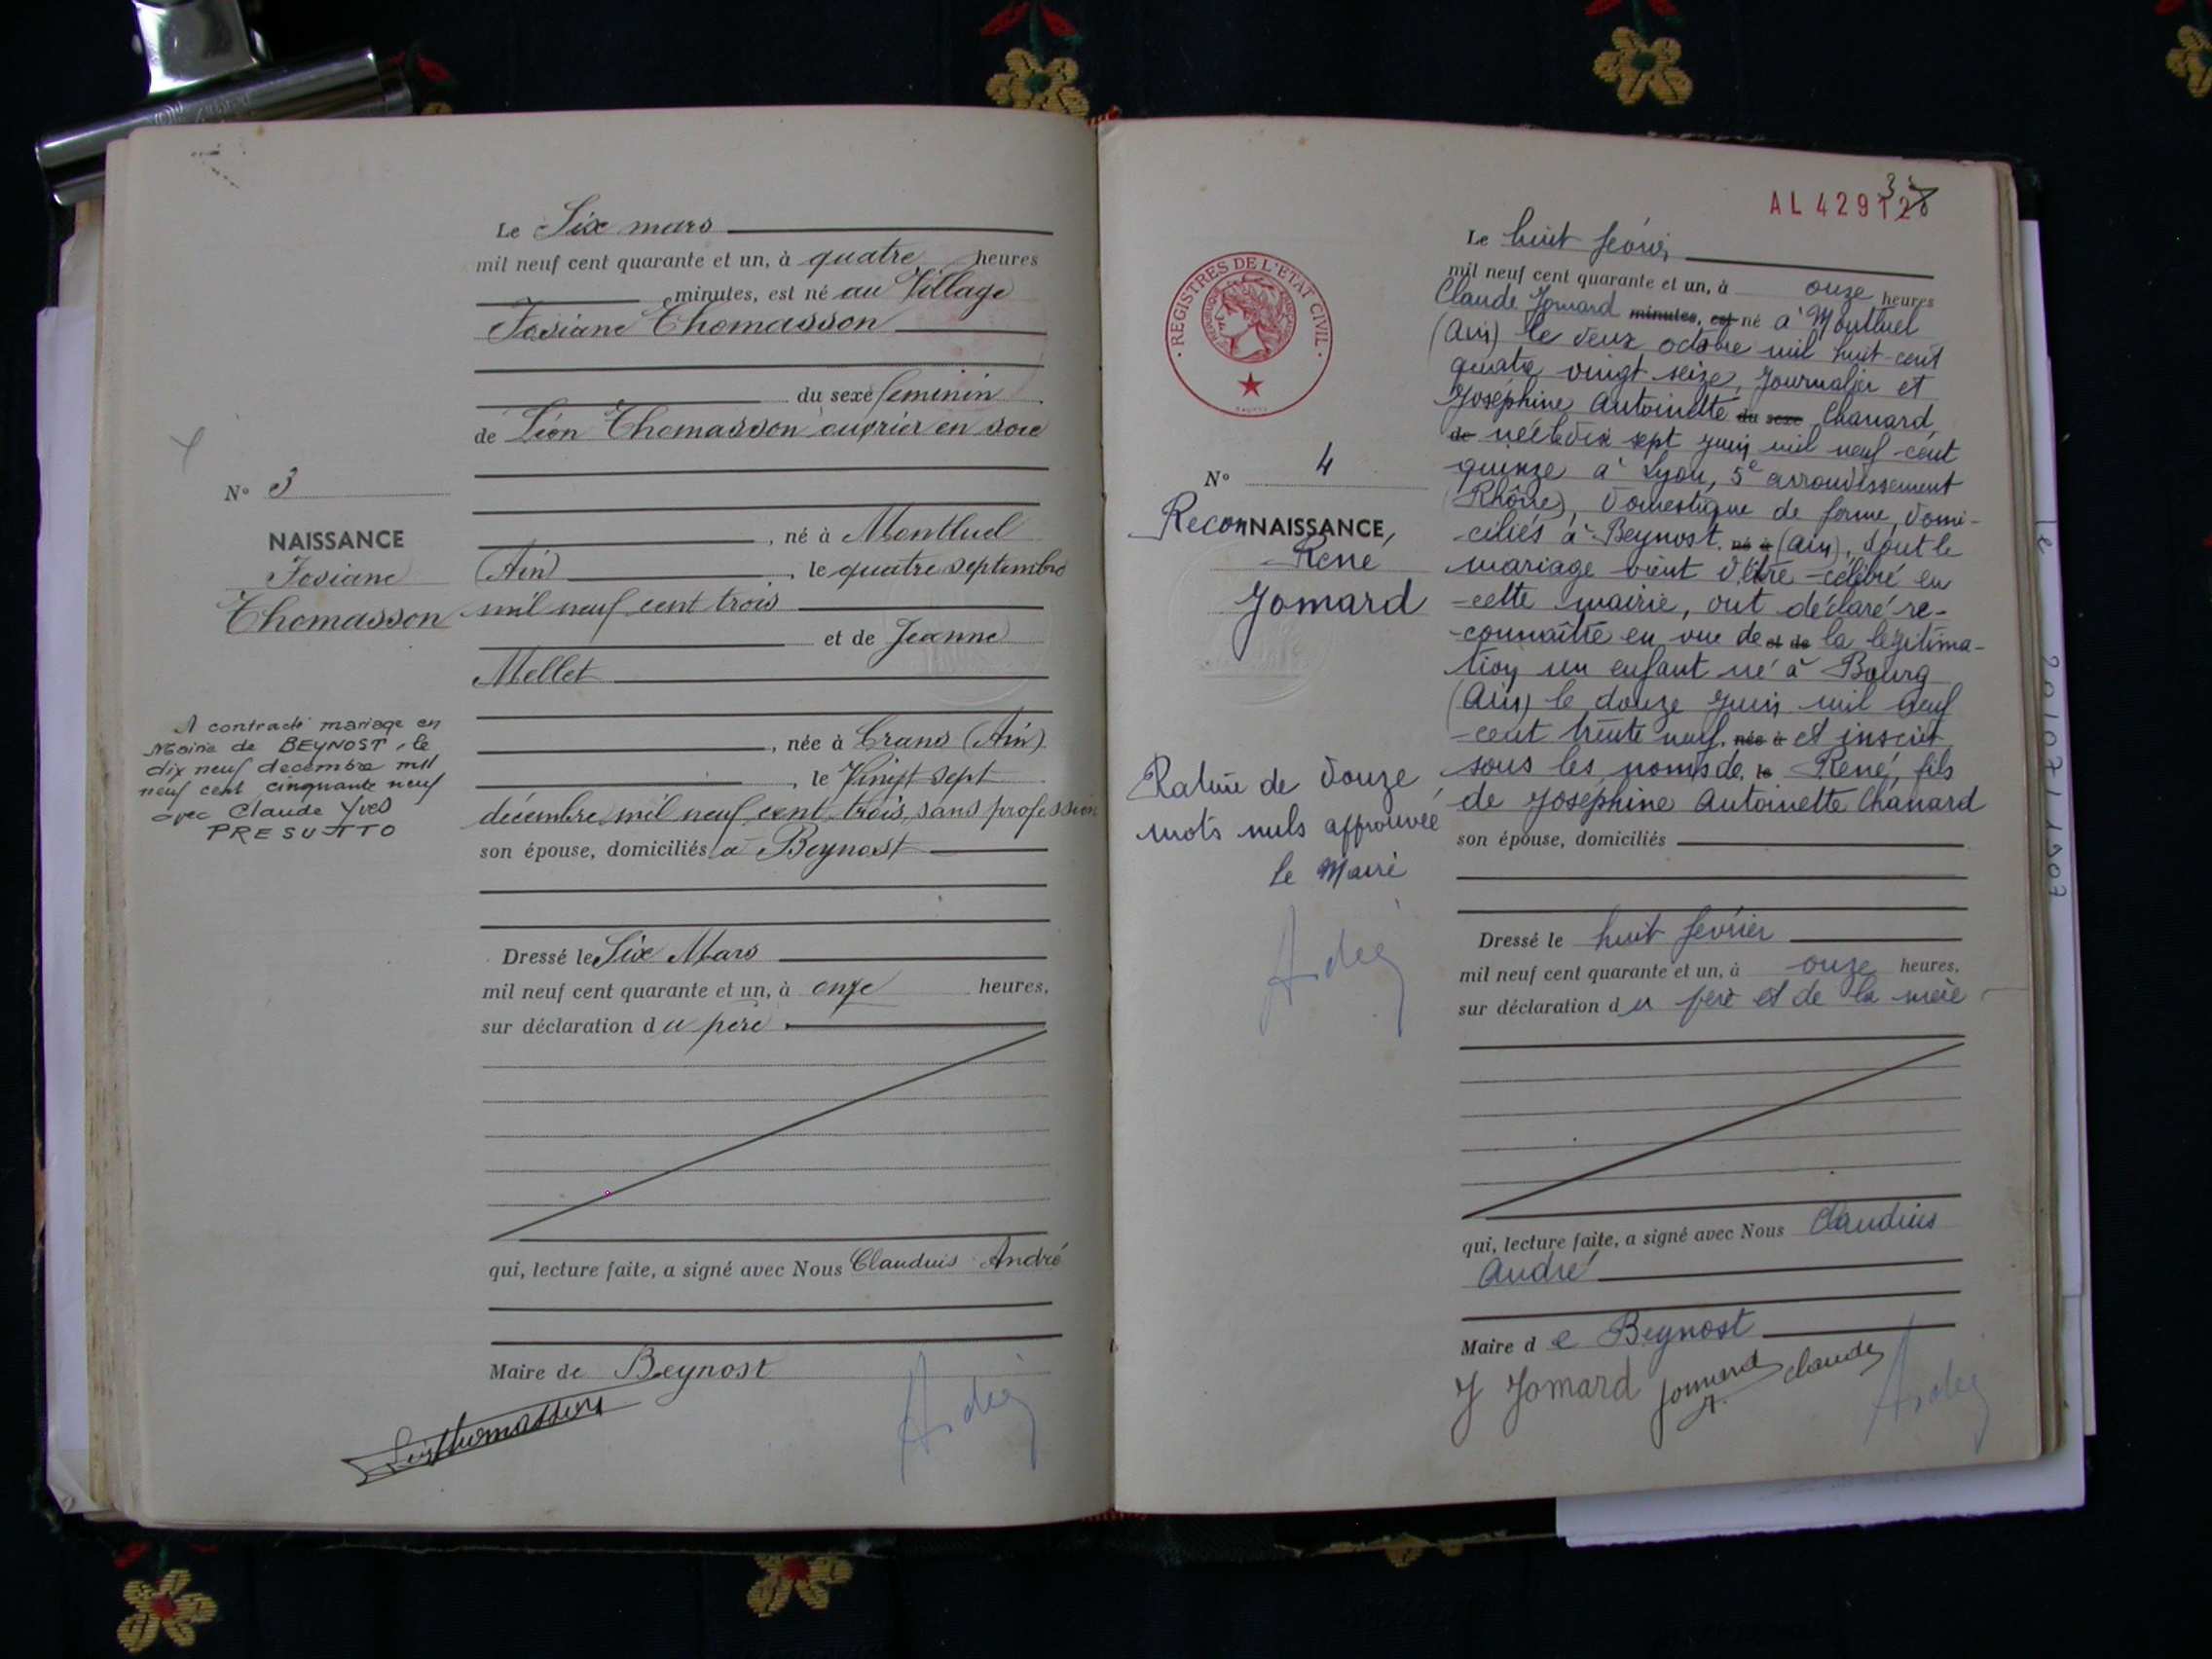 Le Six mars
mil neuf cent quarante et un, à quatre heures
minutes, est né au Village
Josiane Thomasson
du sexe feminin
de Léon Thomasson ouvrier en soie
N° 3
, né à Montluel
NAISSANCE
(Ain), le quatre septembre
Josiane
mil neuf cent trois
Thomasson
et de Jeanne
Mellet
A contracté mariage en
Mairie de BEYNOST, le
dix neuf decembre mil
neuf cent cinquante neuf
avec Claude Yves
PRESUTTO
, née à Crans (Ain)
, le Vingt sept
décembre mil neuf cent trois, sans profession
son épouse, domiciliés à Beynost
Dressé le Six Mars
mil neuf cent quarante et un, à onze heures,
sur déclaration du père
qui, lecture faite, a signé avec Nous Claudius André
Maire de Beynost
AL 429
Le huit févri
mil neuf cent quarante et un, à onze heures
Claude Jomard minutes, est né à Montluel
(Ain) le deux octobre mil huit cent
quatre vingt seize, Journalier et
Joséphine Antoinette du sexe Chanard,
de née le dix sept juin mil neuf cent
quinze à Lyon, 5e arrondissement
(Rhône), domestique de ferme, domi-
-ciliés à Beynost né à (Ain), dont le
mariage vient d'être célébré en
cette mairie, ont déclaré re-
-connaître en vue de et de la légitima-
tion un enfant né à Bourg
(Ain) le douze juin mil neuf
cent trente neuf, née à et inscrit
sous les noms de, le René, fils
de Joséphine Antoinette Chanard
son épouse, domiciliés
REGISTRES DE L'ETAT CIVIL
N° 4
ReconNAISSANCE,
René
Jomard
Rature de douze
mots nuls approuvée
le Maire
André
Dressé le huit février
mil neuf cent quarante et un, à onze heures,
sur déclaration du père et de la mère
qui, lecture faite, a signé avec Nous Claudius
André
Maire de Beynost
J Jomard Jomard Claude André